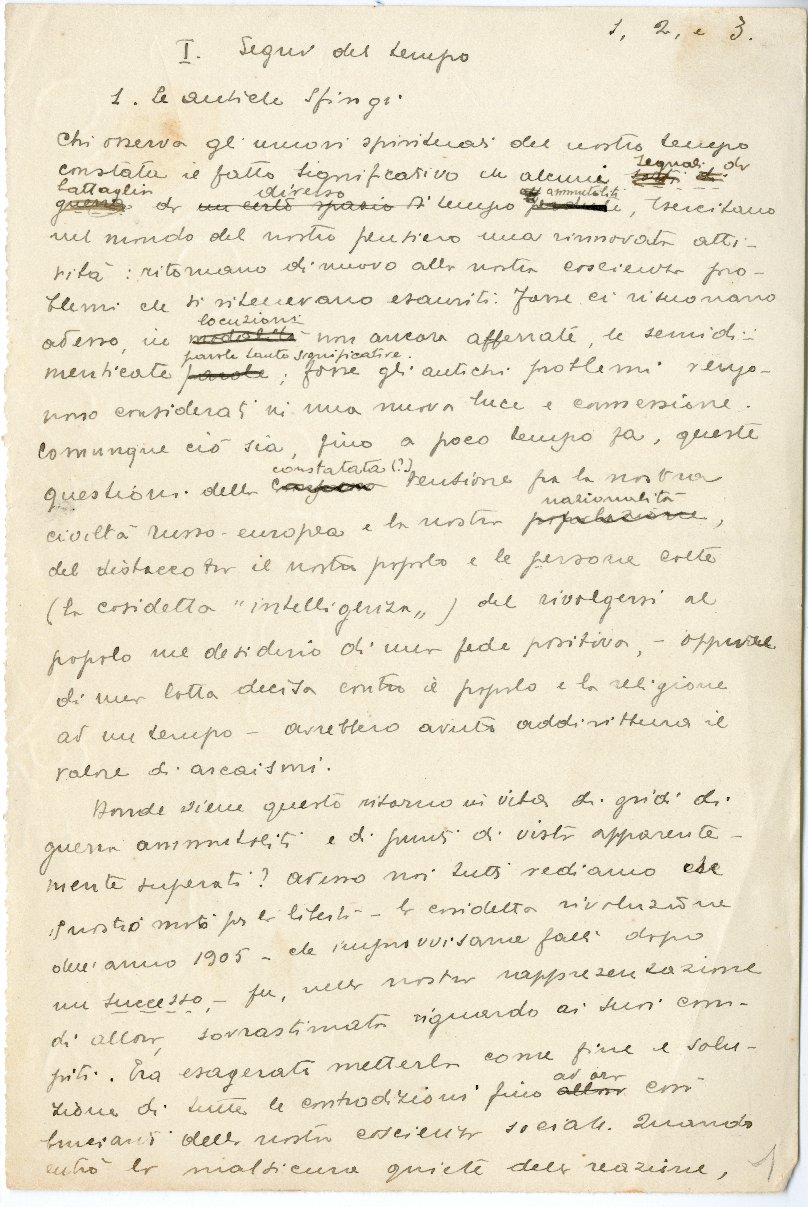 1, 2, e 3.
I. Segni del tempo
1. Le antiche Sfingi
Chi osserva gli umori spirituali del nostro tempo
constata il fatto significativo che alcuni segnali di
battaglia di diverso tempo ammutoliti, esercitano
nel mondo del nostro pensiero una rinnovata atti-
vità: ritornano di nuovo alla nostra coscienza pro-
blemi che si ritenevano esauriti. Forse ci risuonano
adesso, in locuzioni non ancora afferrate, le semidi-
menticate parole tanto significative; forse gli antichi problemi vengo-
no considerati in una nuova luce e connessione.
Comunque ciò sia, fino a poco tempo fa, queste
questioni della constatata (?) tensione fra la nostra
civiltà russo-europea e la nostra nazionalità,
del distacco tra il nostro popolo e le persone colte
(la cosidetta "intelligenza„) del rivolgersi al
popolo nel desiderio di una fede positiva, – oppure
di una lotta decisa contro il popolo e la religione
ad un tempo – avrebbero avuto addirittura il
valore di arcaismi.
Donde viene questo ritorno in vita di gridi di
guerra ammutoliti e di punti di vista apparente-
mente superati? Adesso noi tutti vediamo che
il nostro moto per la libertà – la cosidetta rivoluzione
dell'anno 1905 – che improvvisamente fallì dopo
un successo, – fu, nella nostra rappresentazione
di allora, sovrastimata riguardo ai suoi com-
piti. Era esagerato metterla come fine e solu-
zione di tutte le contradizioni fino ad ora così
brucianti della nostra coscienza sociale. Quando
entrò la malsicura quiete della reazione,
1